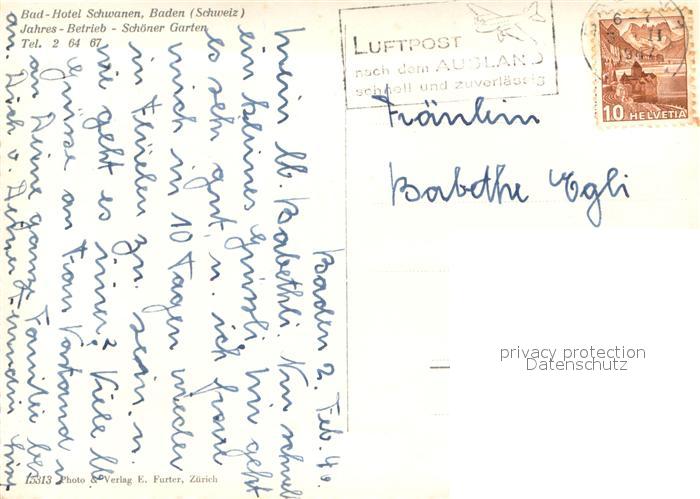 Bad-Hotel Schwanen, Baden (Schweiz)
Jahres-Betrieb - Schöner Garten
Tel. 2 64 67
LUFTPOST
nach dem AUSLAND
schnell und zuverlässig
10 HELVETIA
Fräulein
Babethe Egli
privacy protection
Datenschutz
Baden 2. Feb. 40.
Mein lb. Babethli. Nun schnell
ein kleines Grüssli. Mir geht
es sehr gut, u. ich freue
mich in 10 Tagen wieder
in Flüelen zu sein. u.
wie geht es immer? Viele lb
Grüsse an Frau Vorstand u
an Deine ganze Familie bes.
an Dich v. Deiner Freundin
15313 Photo & Verlag E. Furter, Zürich